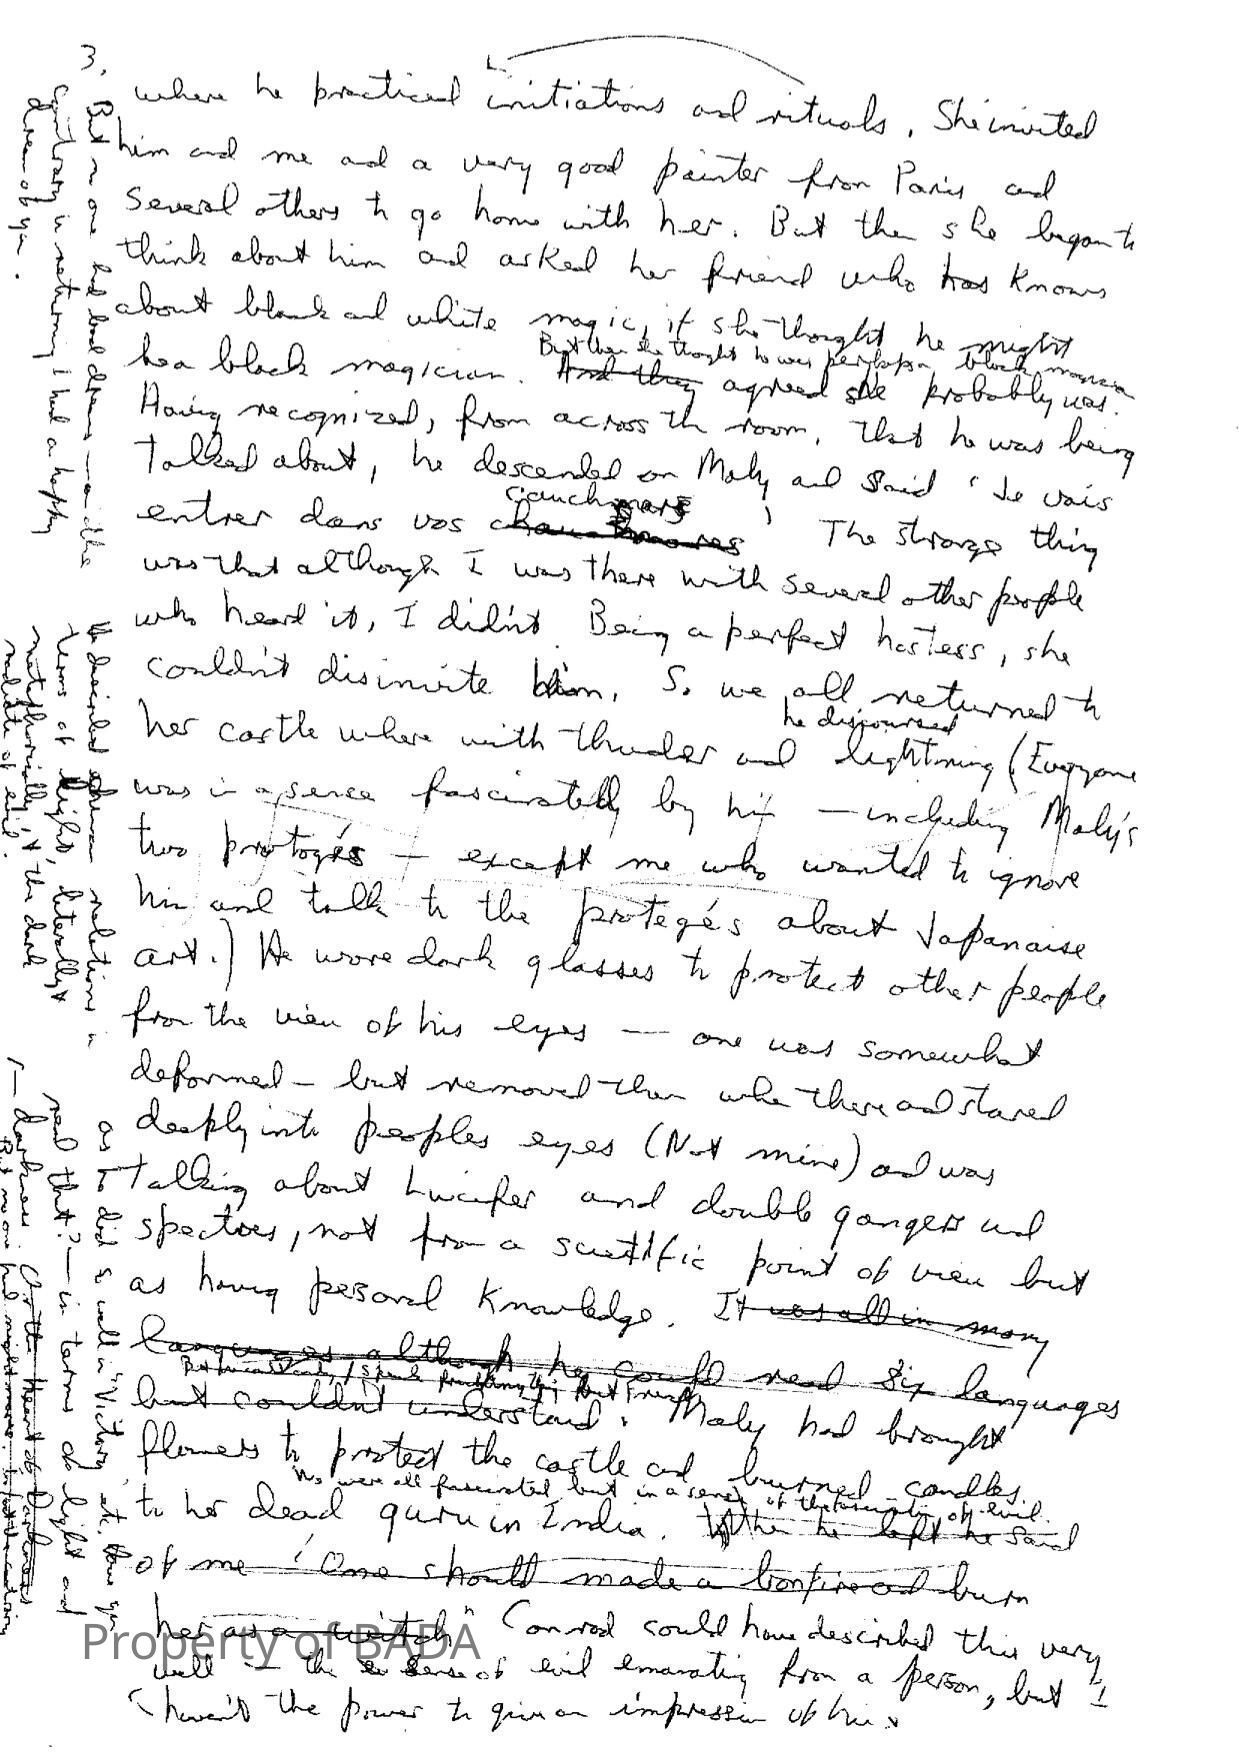 3.
where he practiced initiations and rituals. She invited
him and me and a very good painter from Paris and
several others to go home with her. But then she began to
think about him and asked her friend who has knows
about black and white magic, if she thought he might
But then she thought he was perhaps a black magician
be a black magician. And they agreed she probably was.
Having recognized, from across the room, that he was being
talked about, he descended on Maly and said 'Je vais
cauchmars
entrer dans vos '. The strange thing
was that although I was there with several other people
who heard it, I didn't. Being a perfect hostess, she
couldn't disinvite him. So we all returned to
he discoursed
her castle where with thunder and lightning (Everyone
was in a sense fascinated by him — including Maly's
two protogés — except me who wanted to ignore
him and talk to the protegés about Japanaise
art.) He wore dark glasses to protect other people
from the view of his eyes — one was somewhat
deformed — but removed them while there and stared
deeply into peoples eyes (Not mine) and was
talking about Lucifer and double gangers and
spectres, not from a scientific point of view but
as having personal knowledge. It was all in many
languages although he could read six languages
But he constantly speak anything but French
but couldn't understand. Maly had brought
flowers to protect the castle and burned candles
We were all fascinated but in a sense of the fascination of evil.
to her dead guru in India. When he left he said
of me 'One should made a bonfire and burn
her as a witch" Conrad could have described this very
well — the sense of evil emanating from a person, but I
haven't the power to give an impression of him
But no one had bad dreams — on the
contrary in returning I had a happy
dream of you.
he described human relations in
terms of light, literally &
metaphorically & the dark
radiate of evil.
as I did so well in "Victory", at
read that? — in terms of light and
— darkness. Or the Heart of Darkness
But no one had nightmares
Property of BADA